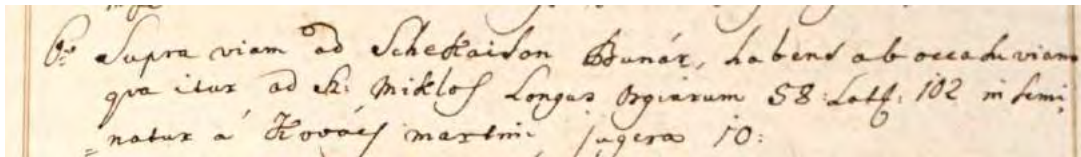 6o Supra viam ad Schekaison Bunár, habens ab occadu viam
qva itur ad Sz: Miklos Longus Orgiarum 58 Latq: 102 in semi¬
natur á Kovács martini jugera 10: